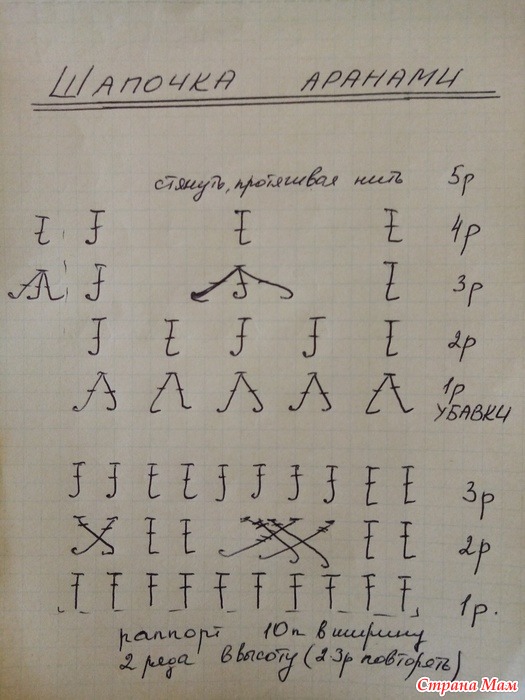 ШАПОЧКА АРАНАМИ
стянуть, протягивая нить 5р
4р
3р
2р
1р
УБАВКИ
3р
2р
1р.
раппорт 10п в ширину
2 ряда в высоту (2-3р повторять)
Страна Мам